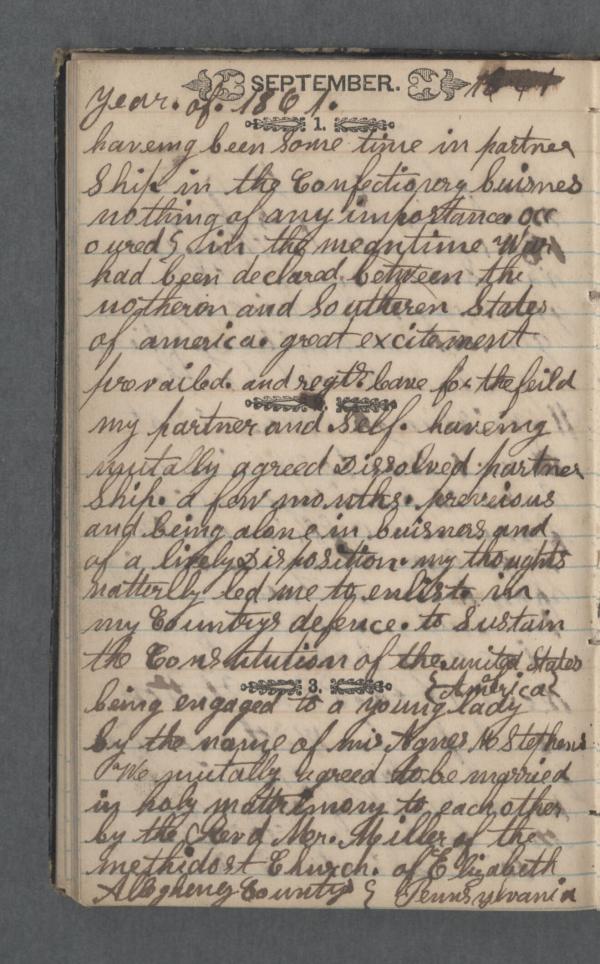 SEPTEMBER.
year. of. 1861.
1.
haveing been some time in partner
Ship in the Confectionery buisnes
nothing of any importance occ
oured in the meantime War
had been declared between the
notheron and Southeren States
of america. great excitement
prevailed. and regts leave for the feild
my partner and Self. haveing
mutally agreed Dissolved partner
Ship. a few months. preveious
and being alone in buisness and
of a lively Disposition. my thoughts
natterly led me to enliste in
my Countrys defence. to Sustain
the Constitution of the united States
of America
3.
being engaged to a young lady
by the name of mis Agnes Mc Stephens
We mutally agreed to be married
in holy mattrimony to each other
by the Revd Mr. Miller of the
methidost Church. of Elizabeth
Allegheney County Pennsylvania